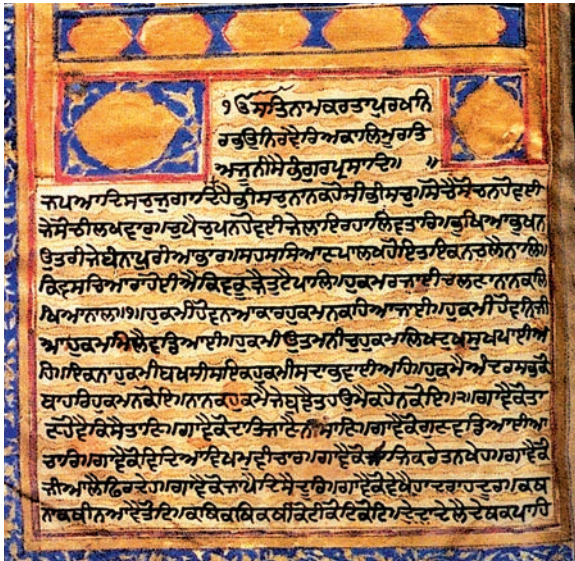 ੴਸਤਿਨਾਮਕਰਤਾਪੁਰਖਨਿ
ਰਭਉਨਿਰਵੈਰਿਅਕਾਲਿਮੂਰਤਿ
ਅਜੂਨੀਸੈਭੰਗੁਰਪ੍ਰਸਾਦਿ॥ ॥
ਜਪਆਦਿਸਚੁਜੁਗਾਦਿਹੈਭੀਸਚੁਨਾਨਕਹੋਸੀਭੀਸਚੁ॥ਸੋਚੈਸੋਚਨਹੋਵਈ
ਜੇਸੋਚੀਲਖਵਾਰ॥ਚੁਪੈਚੁਪਨਹੋਵਈਜੇਲਾਇਰਹਾਲਿਵਤਾਰਿ॥ਭੁਖਿਆਭੁਖਨ
ਉਤਰੀਜੇਬੰਨਾਪੁਰੀਆਭਾਰ॥ਸਹਸਸਿਆਣਪਾਲਖਹੋਇਤਇਕਨਚਲੈਨਾਲਿ॥
ਕਿਵਸਚਿਆਰਾਹੋਈਐਕਿਵਕੂੜੈਤੁਟੈਪਾਲਿ॥ਹੁਕਮਰਜਾਈਚਲਣਾਨਾਨਕਲਿ
ਖਿਆਨਾਲ॥੧॥ਹੁਕਮੀਹੋਵਨਆਕਾਰਹੁਕਮਨਕਹਿਆਜਾਈ॥ਹੁਕਮੀਹੋਵਨਿਜੀ
ਆਹੁਕਮਮਿਲੈਵਡਿਆਈ॥ਹੁਕਮੀਉਤਮਨੀਚੁਹੁਕਮਲਿਖਦੁਖਸੁਖਪਾਈਅ
ਹਿ॥ਇਕਨਾਹੁਕਮੀਬਖਸੀਸਇਕਹੁਕਮੀਸਦਾਭਵਾਈਅਹਿ॥ਹੁਕਮੈਅੰਦਰਸਭਕੋ
ਬਾਹਰਿਹੁਕਮਨਕੋਇ॥ਨਾਨਕਹੁਕਮੈਜੇਬੁਝੈਤਹਉਮੈਕਹੈਨਕੋਇ॥੨॥ਗਾਵੈਕੋਤਾ
ਣਹੋਵੈਕਿਸੈਤਾਣਿ॥ਗਾਵੈਕੋਦਾਤਿਜਾਣੈਨੀਸਾਣਿ॥ਗਾਵੈਕੋਗੁਣਵਡਿਆਈਆ
ਚਾਰਿ॥ਗਾਵੈਕੋਵਿਦਿਆਵਿਖਮੁਵੀਚਾਰ॥ਗਾਵੈਕੋਸਾਜਿਕਰੇਤਨਖੇਹ॥ਗਾਵੈਕੋ
ਜੀਆਲੈਫਿਰਦੇਹ॥ਗਾਵੈਕੋਜਾਪੈਦਿਸੈਦੂਰਿ॥ਗਾਵੈਕੋਵੇਖੈਹਾਦਰਾਹਦੂਰ॥ਕਥ
ਨਾਕਥੀਨਆਵੈਤੋਟਿ॥ਕਥਿਕਥਿਕਥੀਕੋਟੀਕੋਟਿਕੋਟਿ॥ਦੇਦਾਦੇਲੈਦੇਥਕਪਾਹਿ